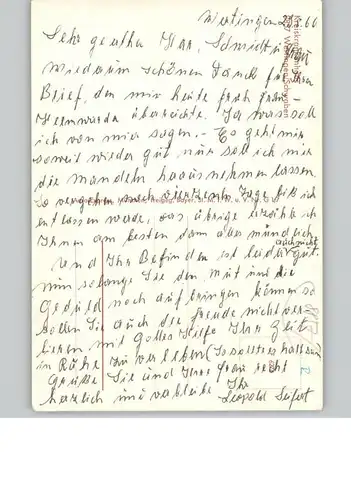 Wertingen 2.3.66
Sehr geerther Herr, Schmidt u Frau
wiederum schönen Dank für Ihren
Brief, den mir heute früh Frau
überreichte. Ja was soll
ich von mir sagen. - Es geht mir
soweit wieder gut nur soll ich mir
die mandeln herausnehmen lassen.
So vergehen noch vierzehn Tage bis ich
entlassen werde, das übrige erzähle ich
Ihnen am besten dann aber mündlich
Und Ihr Befinden ist leider auch nicht gut.
nun solange Sie den mut und die
Geduld noch aufbringen können so
sollen Sie auch die freude nicht ver-
lieren mit Gottes Hilfe Ihr Zeit
in Ruhe zu verleben (So sollte es halt sein
Grüße Sie und Ihre frau recht
herzlich und verbleibe Ihr
Leopold Seifert